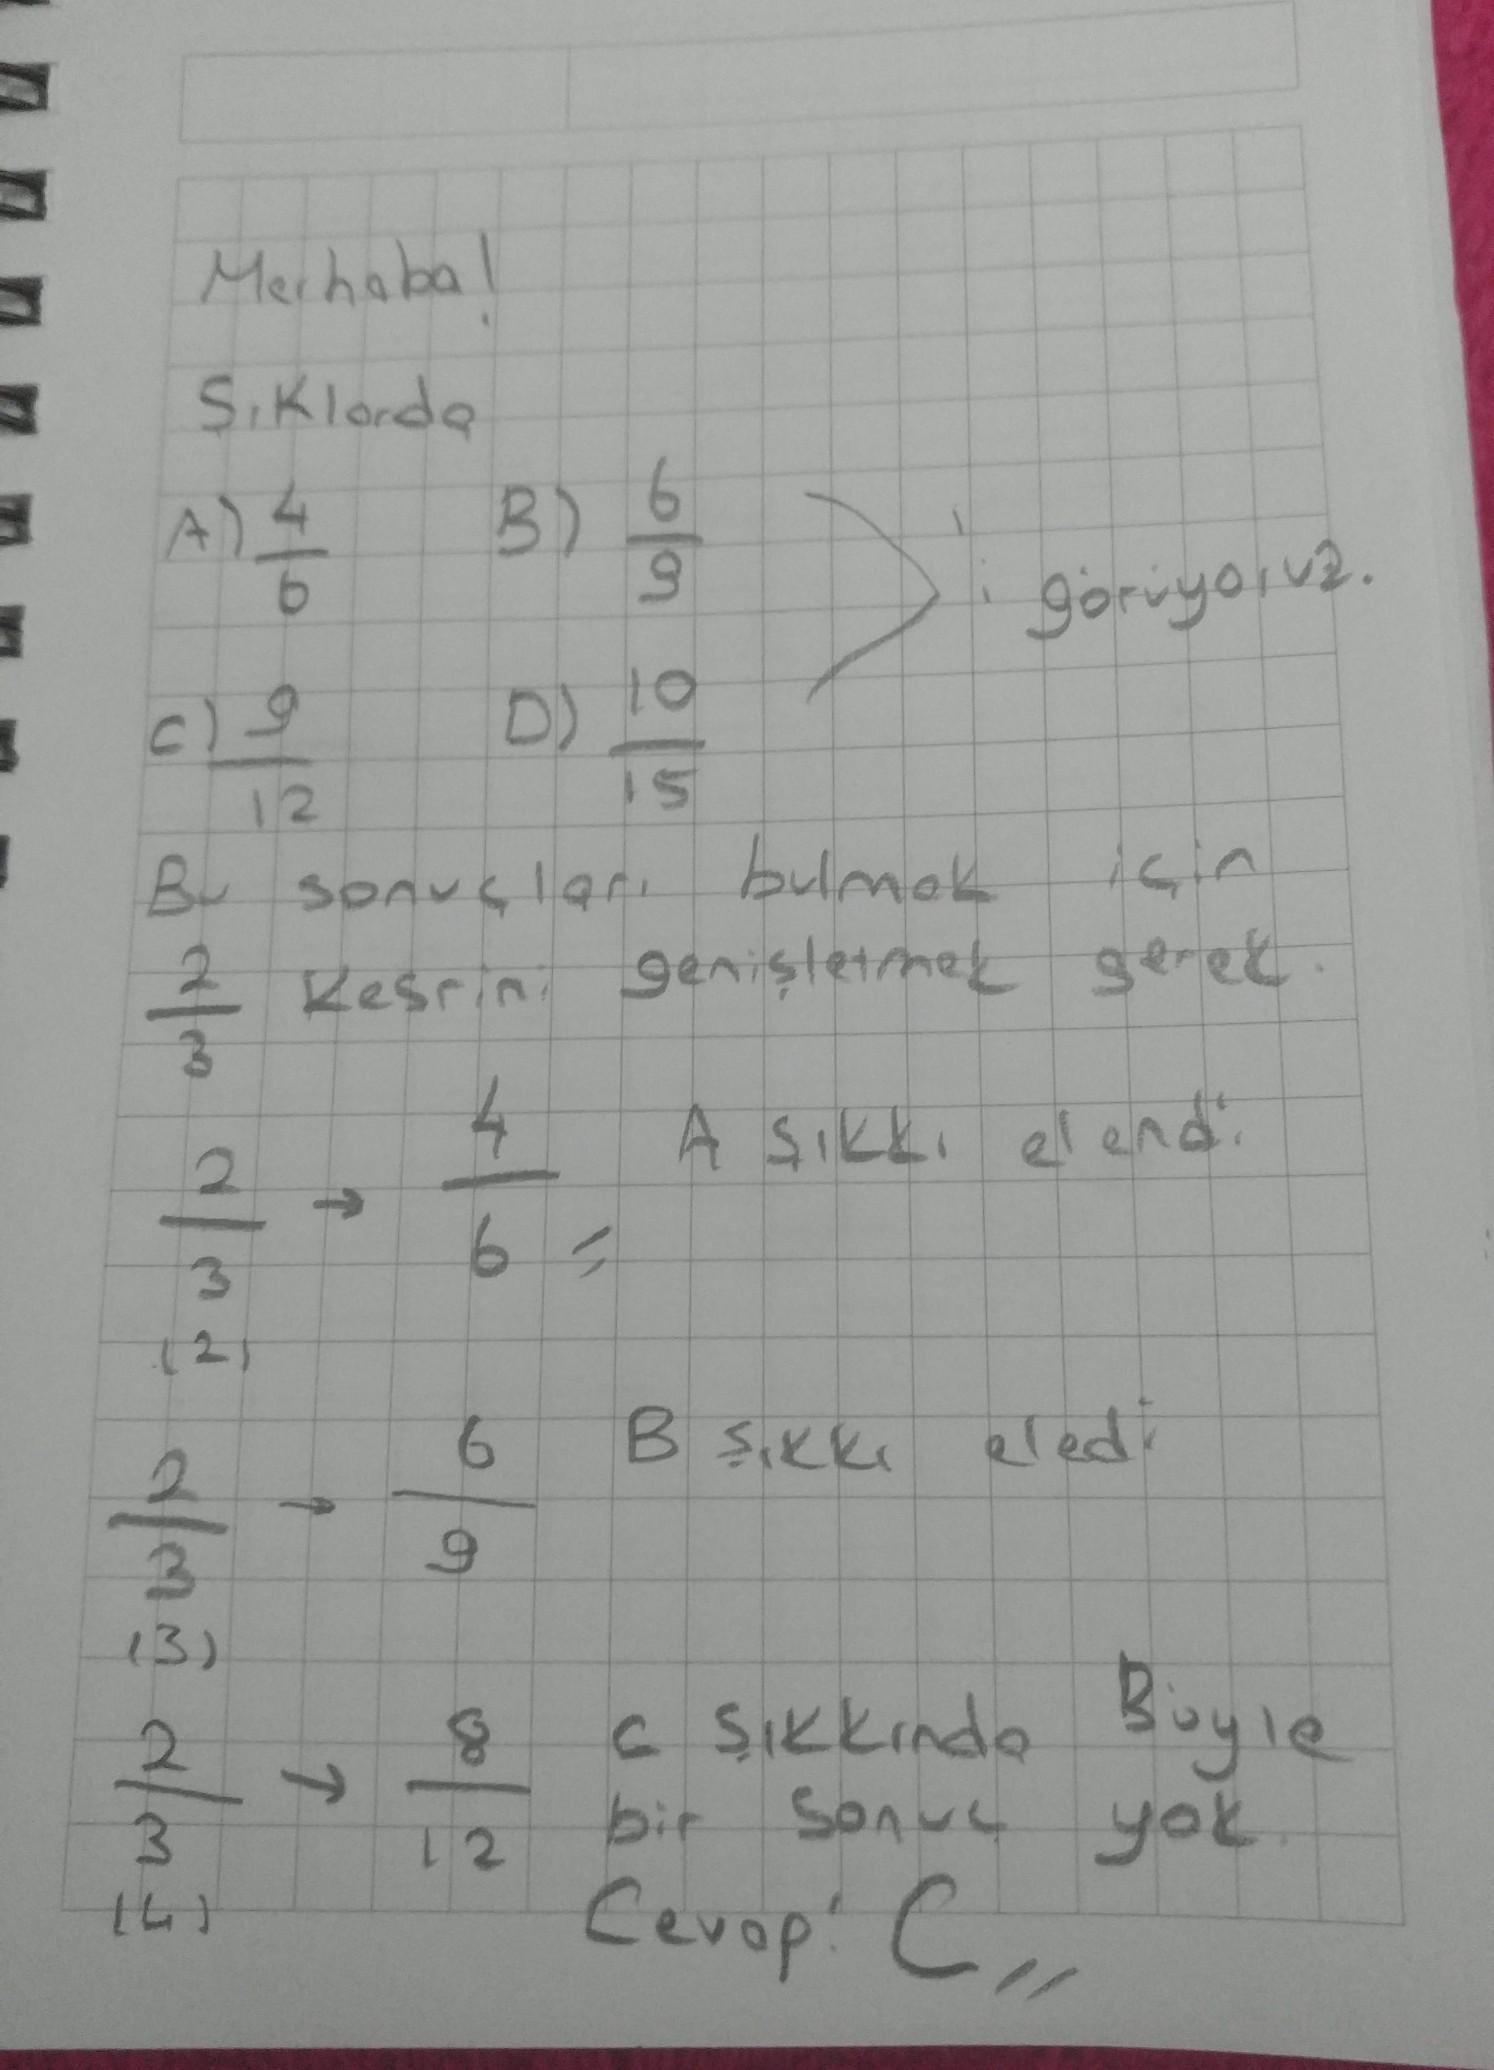 Merhaba!
Şıklarda
A) 4/6 B) 6/9
'i görüyoruz.
C) 9/12 D) 10/15
Bu sonuçları bulmak için
2/3 kesrini genişletmek gerek.
2/3 → 4/6 A şıkkı elendi.
(2)
2/3 → 6/9 B şıkkı eledi
(3)
2/3 → 8/12 C şıkkında Böyle
bir sonuç yok.
(4)
Cevap: C